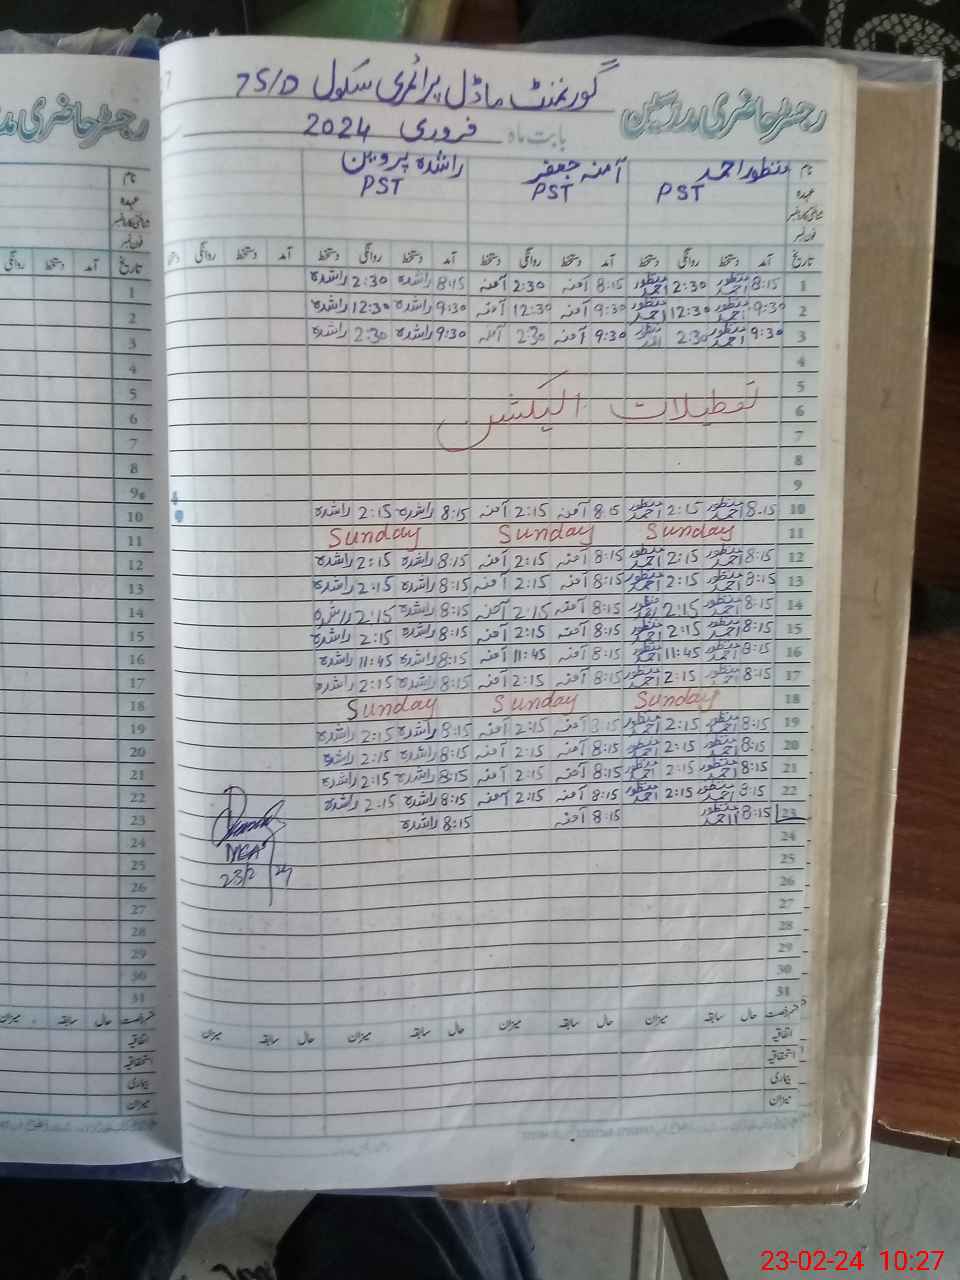 رجسٹر حاضری مدرسین گورنمنٹ ماڈل پرائمری سکول 7S/D
بابت ماہ فروری 2024
نام منظور احمد آمنہ جعفر راشدہ پروین
عہدہ PST PST PST
فون نمبر
تاریخ آمد دستخط روانگی دستخط آمد دستخط روانگی دستخط آمد دستخط روانگی دستخط آمد دستخط روانگی
1 8:15 منظور احمد 2:30 منظور احمد 8:15 آمنہ 2:30 آمنہ 8:15 راشدہ 2:30 راشدہ
2 9:30 منظور احمد 12:30 منظور احمد 9:30 آمنہ 12:30 آمنہ 9:30 راشدہ 12:30 راشدہ
3 9:30 منظور احمد 2:30 منظور احمد 9:30 آمنہ 2:30 آمنہ 9:30 راشدہ 2:30 راشدہ
4
5
6 تعطیلات الیکشن
7
8
9
10 8:15 منظور احمد 2:15 منظور احمد 8:15 آمنہ 2:15 آمنہ 8:15 راشدہ 2:15 راشدہ
11 Sunday Sunday Sunday
12 8:15 منظور احمد 2:15 منظور احمد 8:15 آمنہ 2:15 آمنہ 8:15 راشدہ 2:15 راشدہ
13 8:15 منظور احمد 2:15 منظور احمد 8:15 آمنہ 2:15 آمنہ 8:15 راشدہ 2:15 راشدہ
14 8:15 منظور احمد 2:15 منظور احمد 8:15 آمنہ 2:15 آمنہ 8:15 راشدہ 2:15
15 8:15 منظور احمد 2:15 منظور احمد 8:15 آمنہ 2:15 آمنہ 8:15 راشدہ 2:15 راشدہ
16 8:15 منظور احمد 11:45 منظور احمد 8:15 آمنہ 11:45 آمنہ 8:15 راشدہ 11:45 راشدہ
17 8:15 منظور احمد 2:15 منظور احمد 8:15 آمنہ 2:15 آمنہ 8:15 راشدہ 2:15 راشدہ
18 Sunday Sunday Sunday
19 8:15 منظور احمد 2:15 منظور احمد 8:15 آمنہ 2:15 آمنہ 8:15 راشدہ 2:15 راشدہ
20 8:15 منظور احمد 2:15 منظور احمد 8:15 آمنہ 2:15 آمنہ 8:15 راشدہ 2:15 راشدہ
21 8:15 منظور احمد 2:15 منظور احمد 8:15 آمنہ 2:15 آمنہ 8:15 راشدہ 2:15 راشدہ
22 8:15 منظور احمد 2:15 منظور احمد 8:15 آمنہ 2:15 آمنہ 8:15 راشدہ 2:15 راشدہ
23 8:15 منظور احمد 8:15 آمنہ 8:15 راشدہ
24
25
26
27
28
29
30
31
حال سابقہ میزان حال سابقہ میزان حال سابقہ میزان حال سابقہ میزان
اتفاقیہ
استحقاقیہ
بیماری
میزان
MEA
23/2/24
رجسٹر حاضری
نام
عہدہ
فون نمبر
تاریخ آمد دستخط روانگی
1
2
3
4
5
6
7
8
9
10
11
12
13
14
15
16
17
18
19
20
21
22
23
24
25
26
27
28
29
30
31
حال سابقہ میزان
اتفاقیہ
استحقاقیہ
بیماری
میزان
23-02-24 10:27